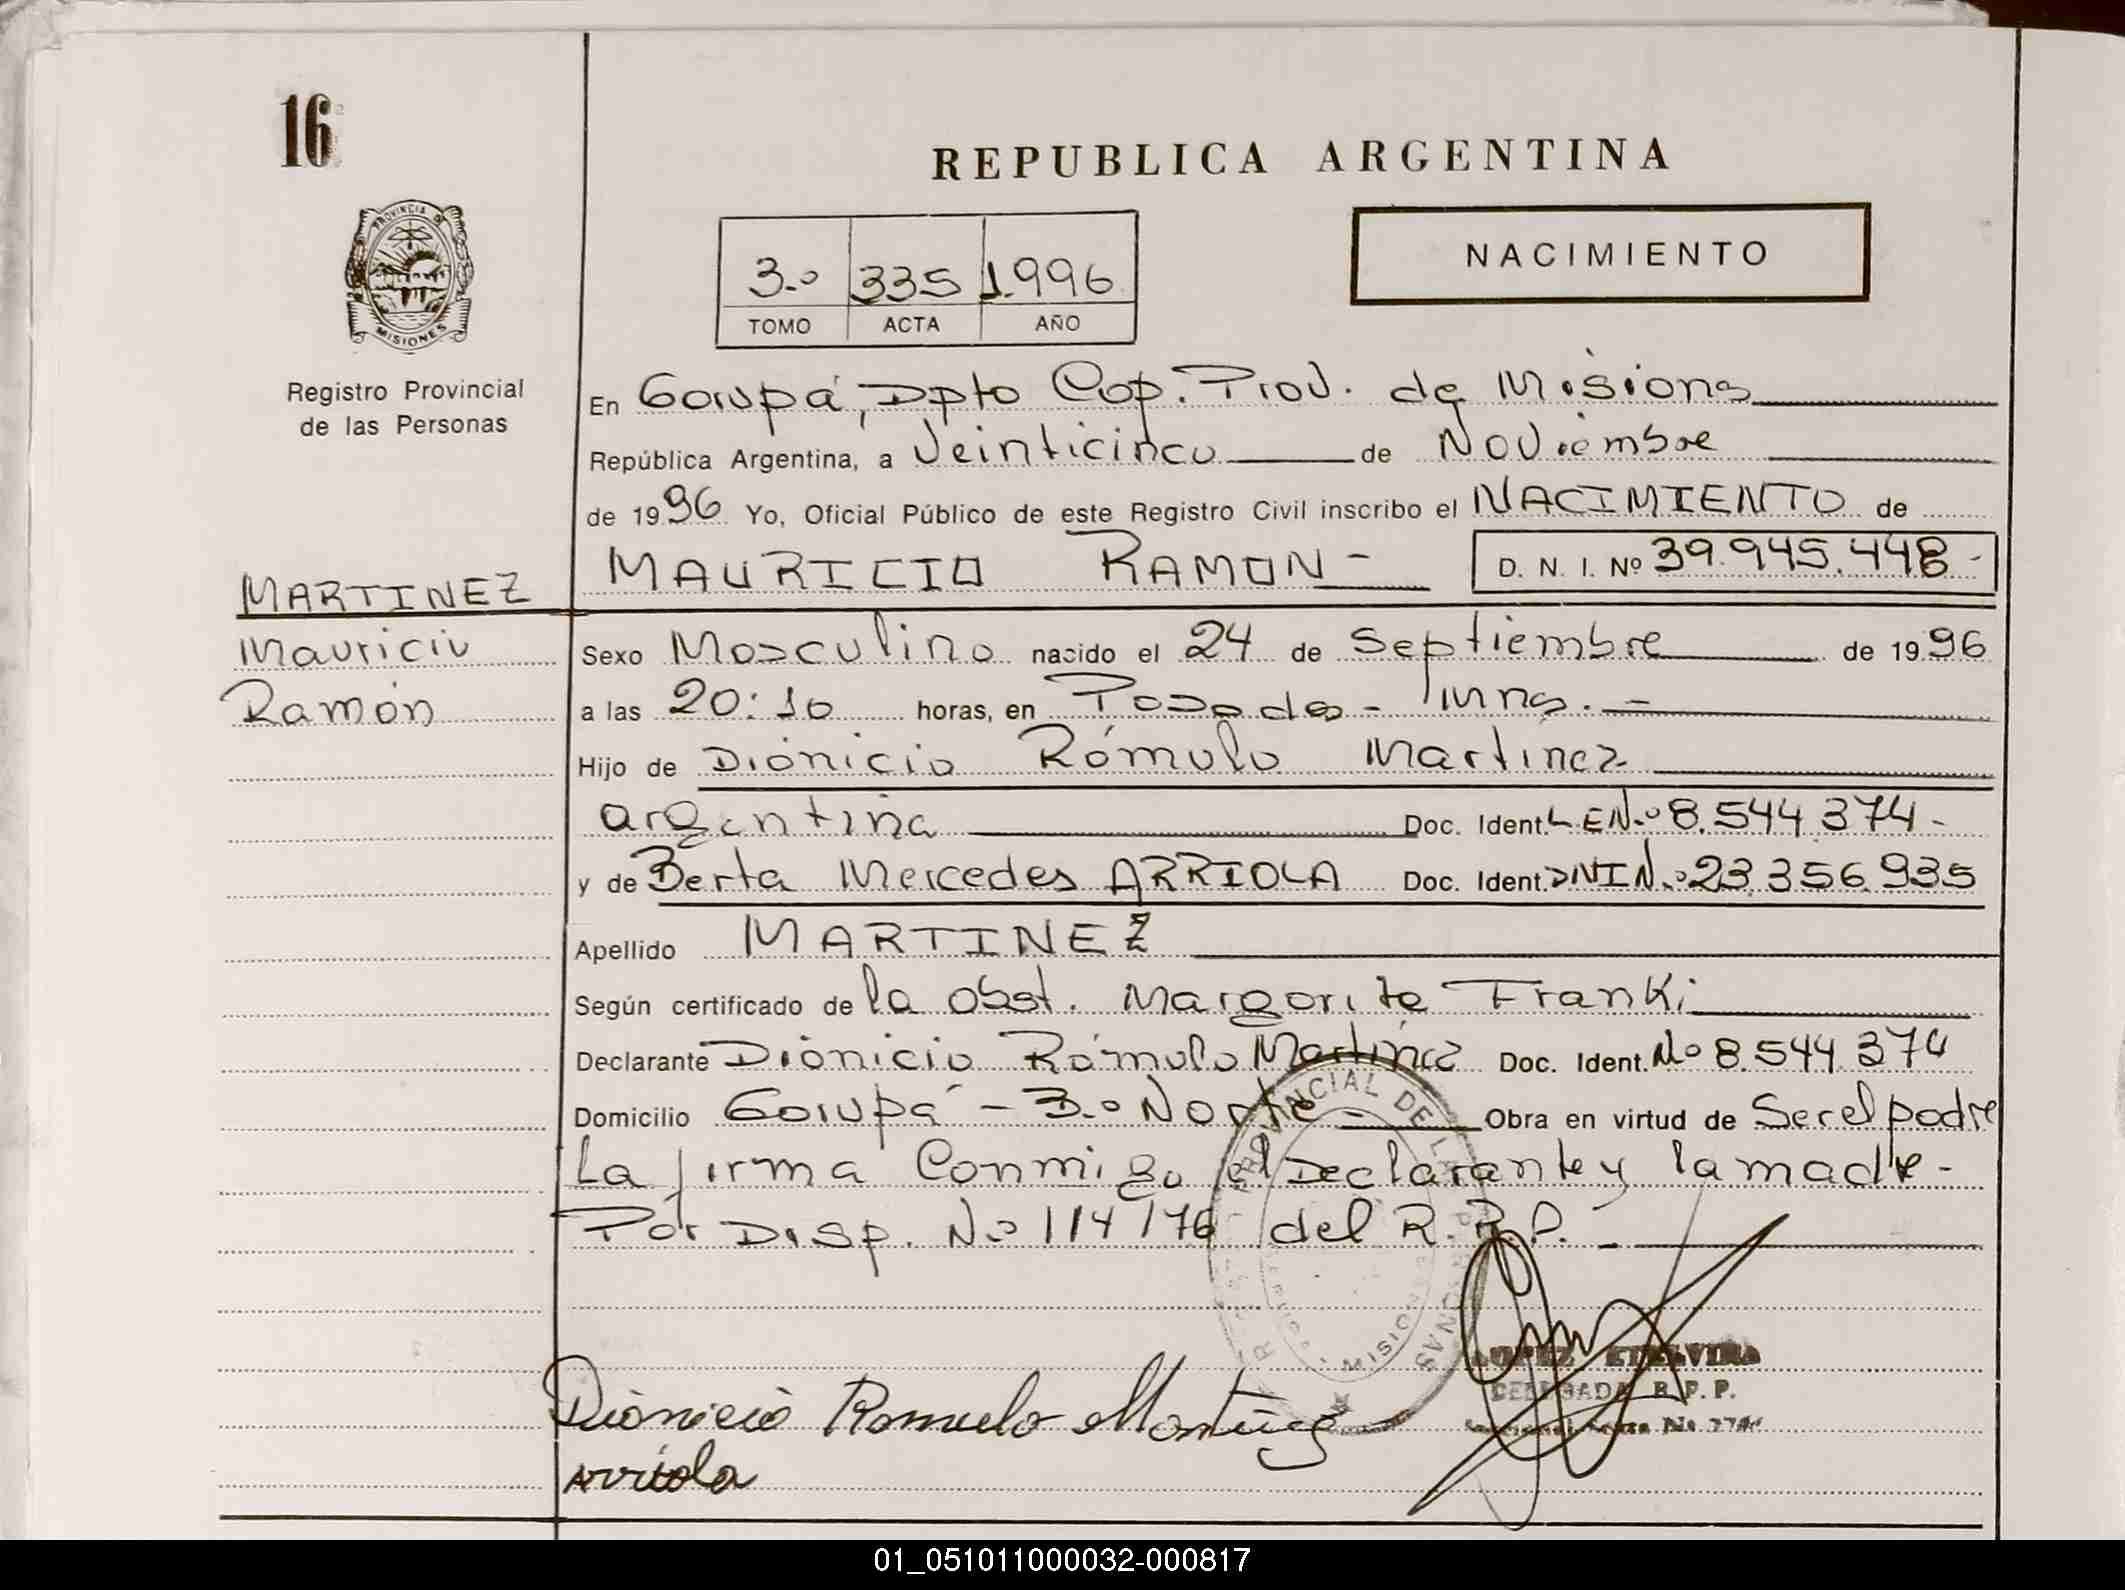 16
REPUBLICA ARGENTINA
PROVINCIA DE
MISIONES
3.º 335 1.996
TOMO ACTA AÑO
NACIMIENTO
Registro Provincial
de las Personas
En Garupá, Dpto Cap. Prov. de Misiones
República Argentina, a Veinticinco de Noviembre
de 1996 Yo, Oficial Público de este Registro Civil inscribo el NACIMIENTO de
MAURICIO RAMON - D. N. I. Nº 39.945.448-
MARTINEZ
Mauricio
Ramón
Sexo Masculino nacido el 24 de Septiembre de 1996
a las 20:10 horas, en Posadas - Mns. -
Hijo de Dionicio Rómulo Martínez
argentina Doc. Ident. L EN.º 8.544.374-
y de Berta Mercedes ARRIOLA Doc. Ident. DNI N.º 23.356.935
Apellido MARTINEZ
Según certificado de la Obst. Margarita Franki
Declarante Dionicio Rómulo Martínez Doc. Ident. Nº 8.544.374
Domicilio Garupá - B.º Norte - Obra en virtud de Ser el padre
La firma Conmigo el Declarante y la madre -
Por Disp. N.º 114/76 del R.R.P. -
PROVINCIAL DE LAS PERSONAS
MISIONES
LOPEZ ETELVINA
DELEGADA R. P. P.
Dionicio Romulo Martinez
Arriola
01_051011000032-000817